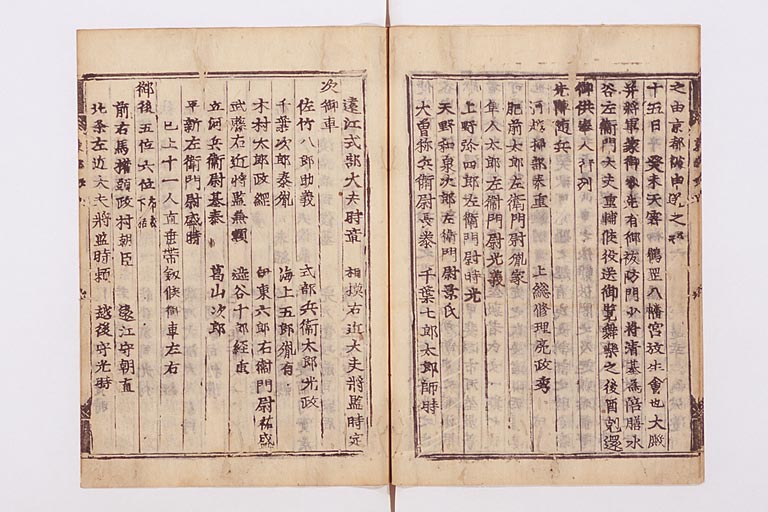 之由京都被申之
十五日 癸未天霽 鶴罡八幡宮放生會也大殿
并將軍家御參先有御祓防門少將清基為陪膳水
谷左衛門大夫重輔候役送御覧舞樂之後酉剋還
御供奉人行列
先陣隨兵
河越掃部泰重 上総修理亮政秀
肥前太郎左衛門尉胤家
隼人太郎左衛門尉光義
上野弥四郎左衛門尉時光
天野和泉次郎左衛門尉景氏
大曽称兵衛尉長泰 千葉七郎太郎師時
遠江式部大夫時章 相模右近大夫將監時定
次御車
佐竹八郎助義 式部兵衛太郎光政
千葉次郎泰胤 海上五郎胤有
木村太郎政經 伊東六郎右衛門尉祐盛
武藤右近將監兼頼 澁谷十郎經重
立河兵衛尉基泰 葛山次郎
平新左衛門尉盛時
已上十一人直垂帯釼候御車左右
御後五位六位布衣下括
前右馬權頭政村朝臣 遠江守朝直
北条左近大夫將監時頼 越後守光時